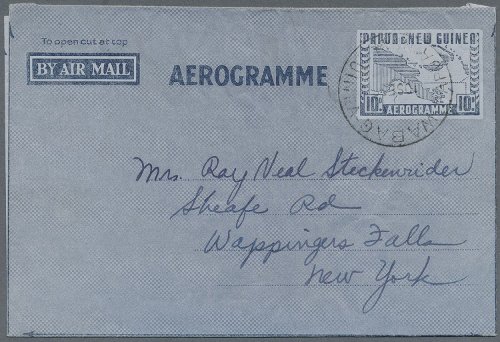 To open cut at top
BY AIR MAIL
AEROGRAMME
PAPUA & NEW GUINEA
10D
AEROGRAMME
10D
WABAG
Mrs. Ray Veal Steckenrider
Sheafe Rd
Wappingers Falls
New York